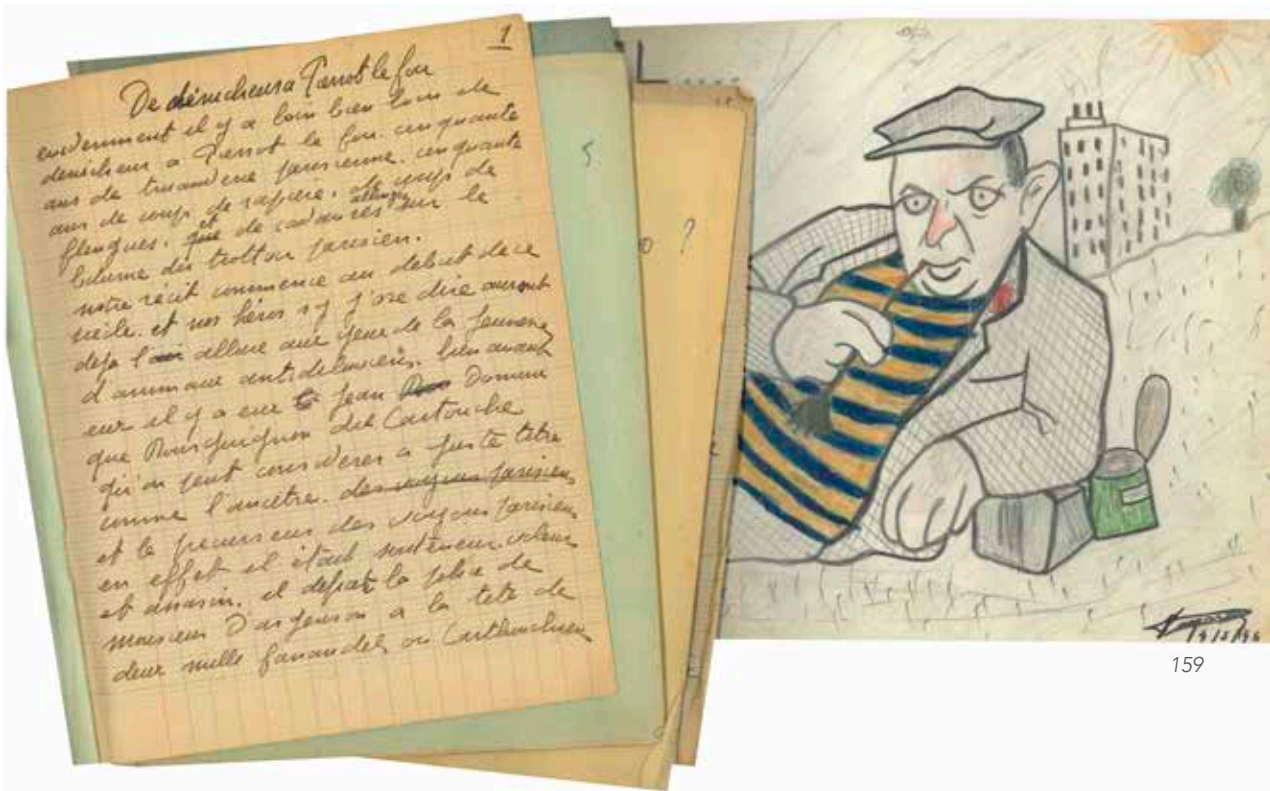 1
De dénicheur a Pierrot le fou
evidemment il y a loin bien loin de
denicheur a Pierrot le fou. cinquante
ans de truanderie parisienne. cinquante
ans de coups de rapiere, de coups de
flingues. et de cadavres allongés sur le
bitume du trottoir parisien.
notre récit commence au debut de ce
siecle. et nos héros si j'ose dire auront
deja l'air allure aux yeux de la
d'animaux antidiluviens. bien avant
eux il y a eu Jean Domini
que Bourguignon dit Cartouche
qu'on peut considerer a juste titre
comme l'ancetre. des voyous parisiens
et le precurseur des voyous parisiens
en effet il était souteneur. voleur
et assassin. il defiait la police de
monsieur D'argenson a la tete de
deux mille fanandels ou Cartouchiens
5
?
L....
159